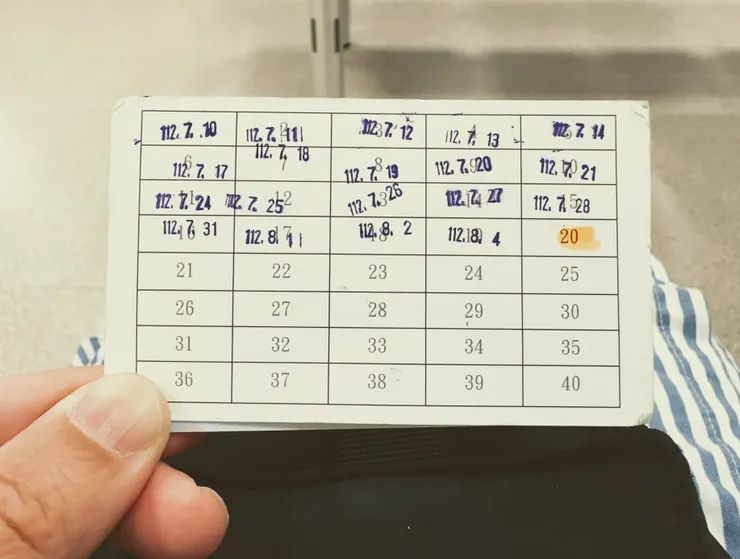 112. 7. 10 112. 7. 11 112. 7. 12 112. 7. 13 112. 7. 14
112. 7. 17 112. 7. 18 112. 7. 19 112. 7. 20 112. 7. 21
112. 7. 24 112. 7. 25 112. 7. 26 112. 7. 27 112. 7. 28
112. 7. 31 112. 8. 1 112. 8. 2 112. 8. 4 20
21 22 23 24 25
26 27 28 29 30
31 32 33 34 35
36 37 38 39 40